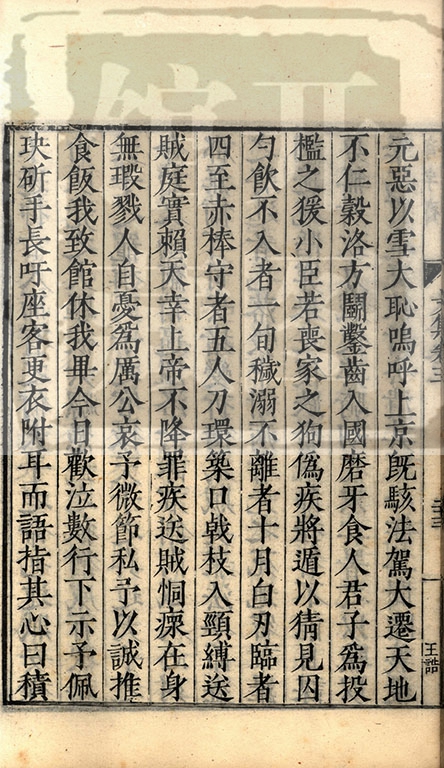 元惡以雪大恥嗚呼上京旣駭法駕大遷天地
不仁穀洛方鬬鑿齒入國磨牙食人君子爲投
檻之猨小臣若喪家之狗僞疾將遁以猜見囚
勺飮不入者一旬穢溺不離者十月白刃臨者
四至赤棒守者五人刀環築口戟枝入頸縛送
賊庭實賴天幸上帝不降罪疾送賊恫瘝在身
無瑕戮人自憂爲厲公哀予微節私予以誠推
食飯我致館休我畢今日歡泣數行下示予佩
玦斫手長吁座客更衣附耳而語指其心曰積
王誥